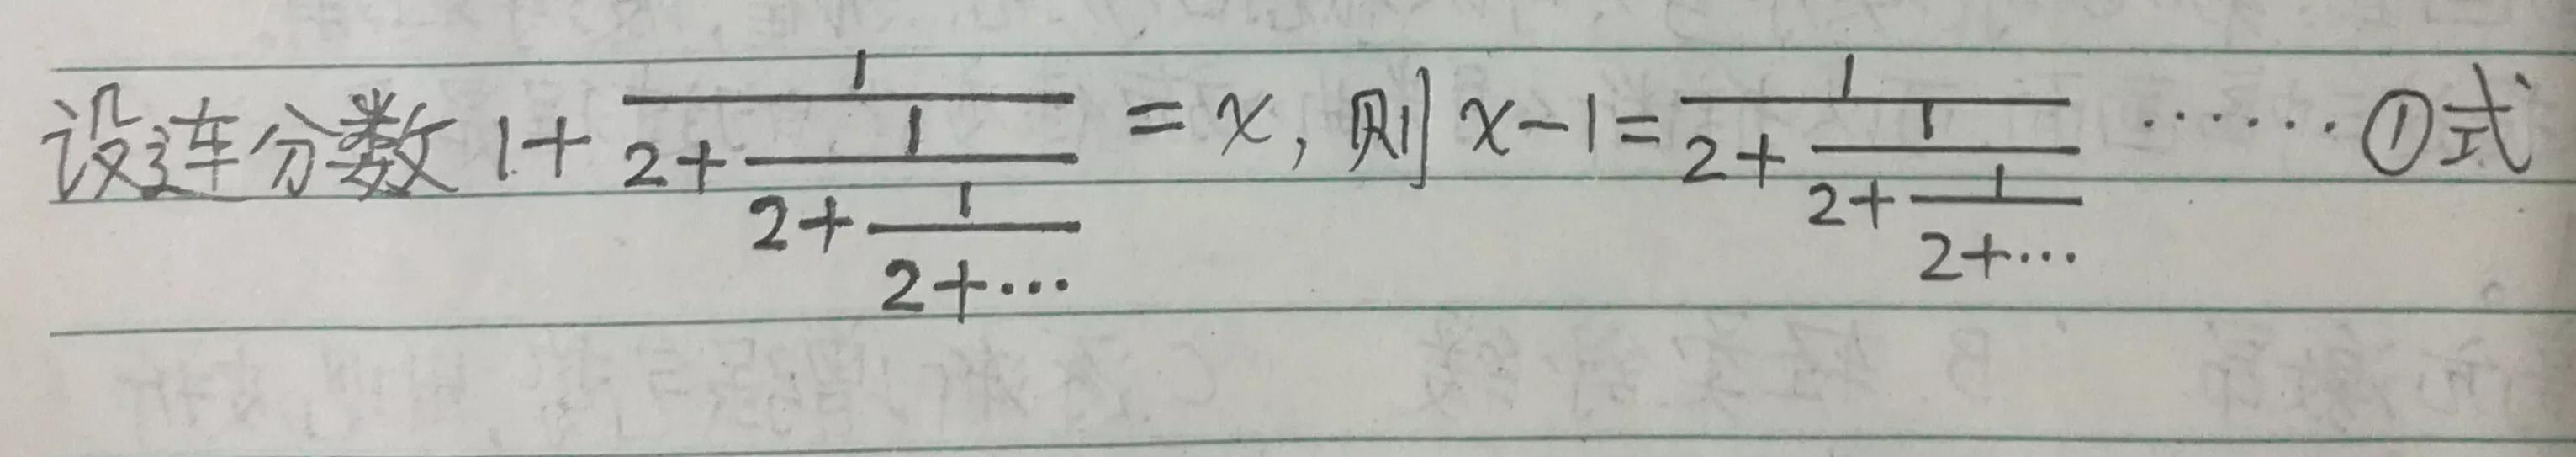 设连分数 1+\frac{1}{2+\frac{1}{2+\frac{1}{2+\cdots}}} = x, 则 x-1=\frac{1}{2+\frac{1}{2+\frac{1}{2+\cdots}}} ……. ①式